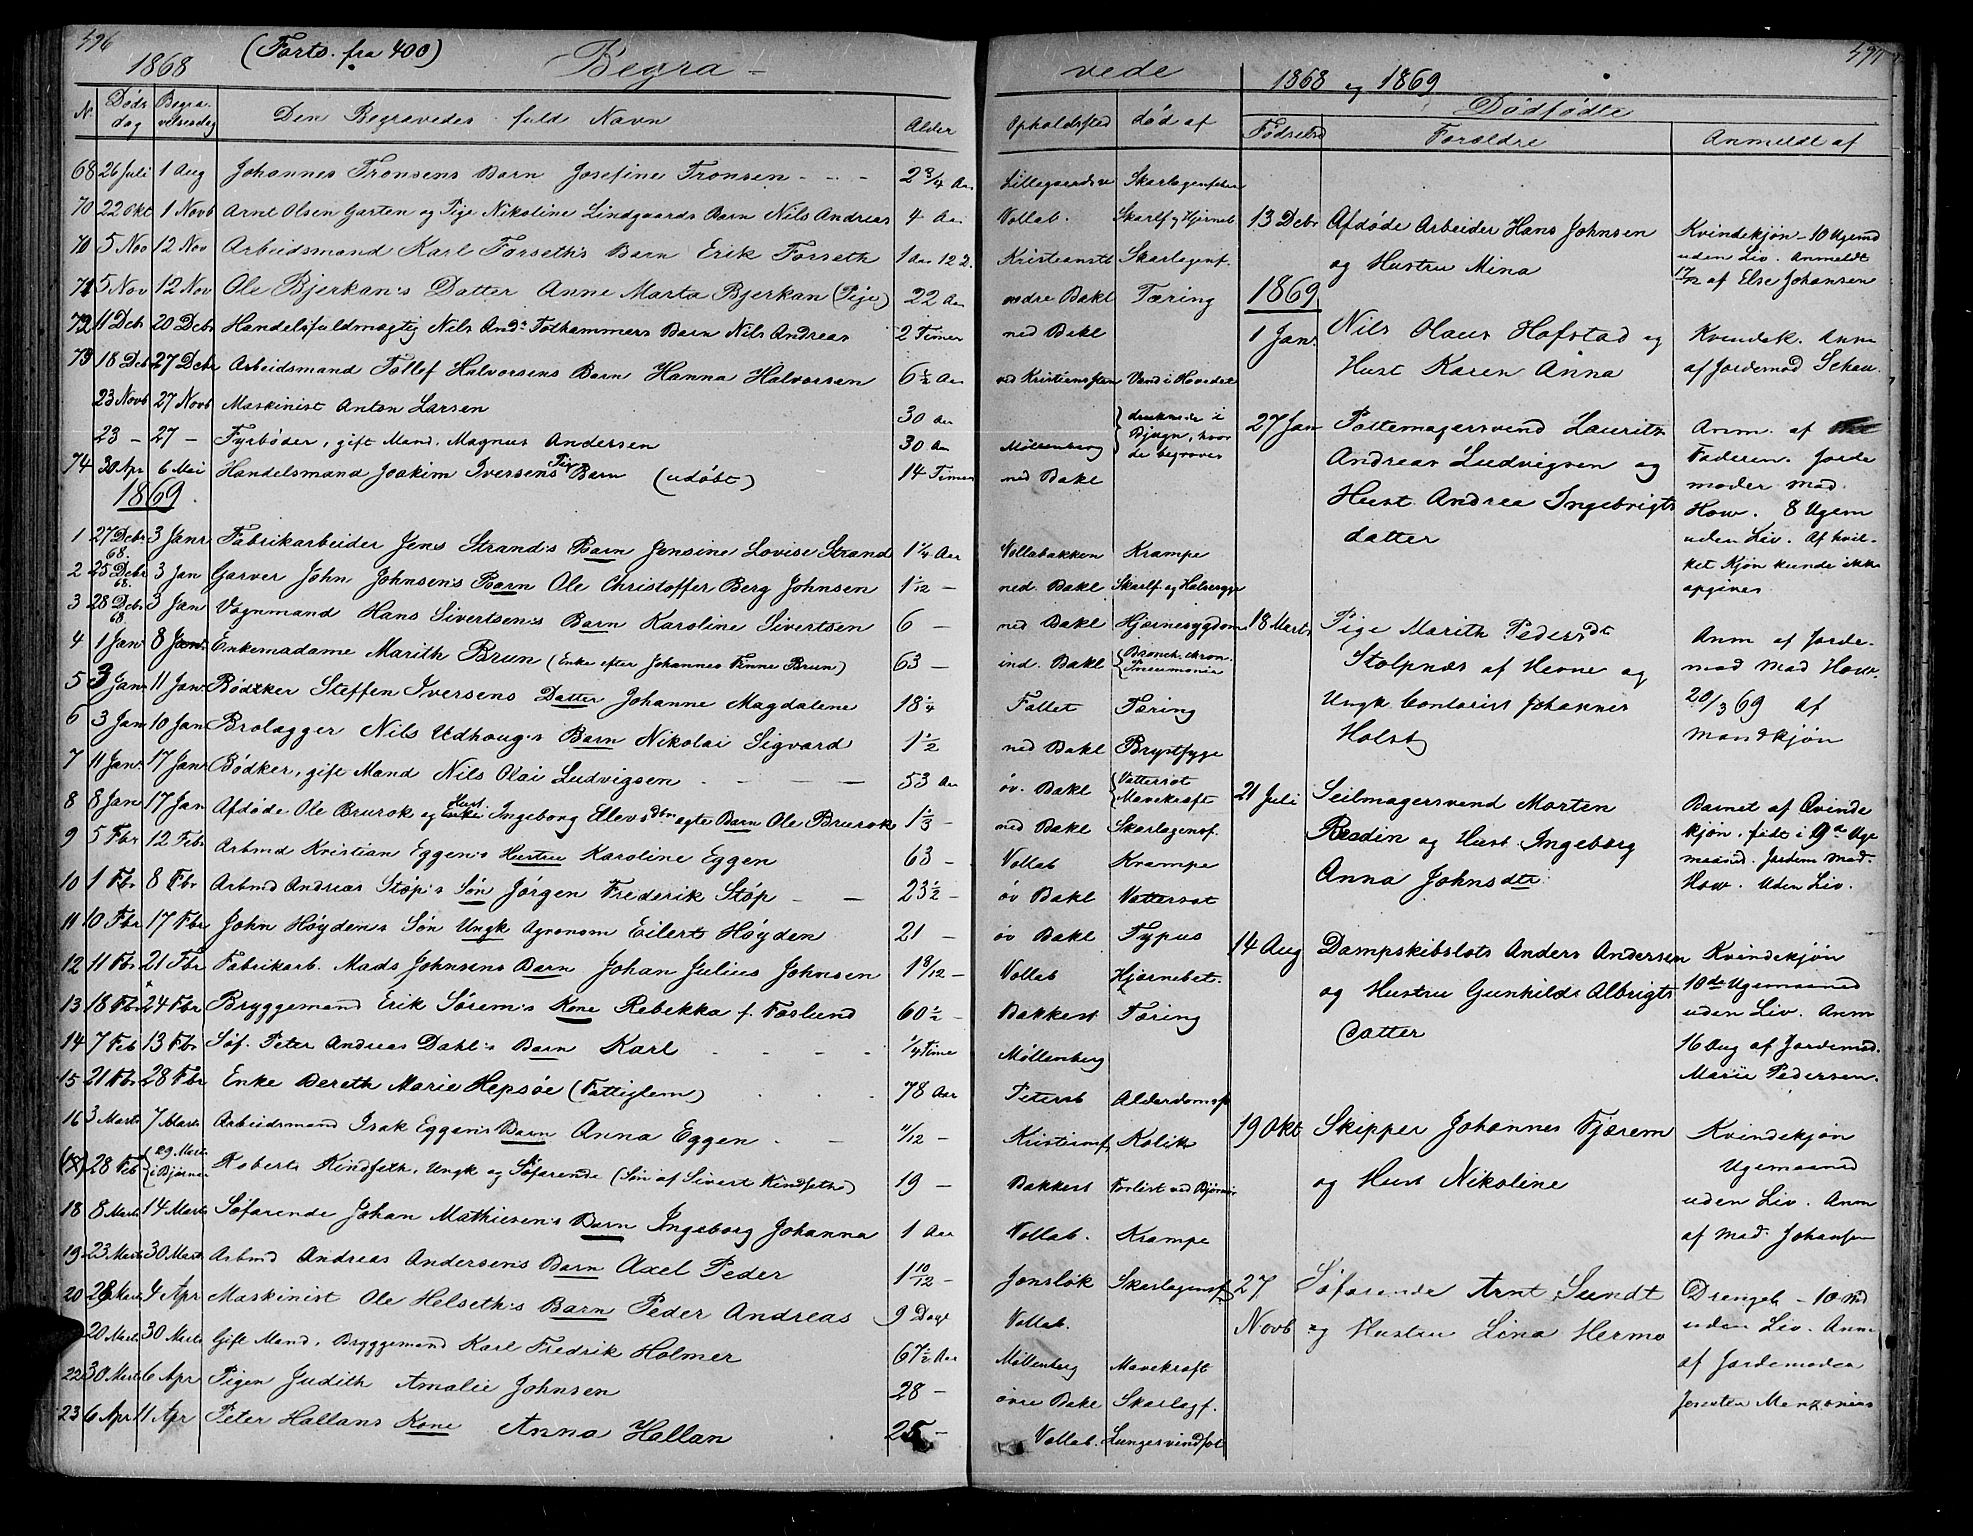 496
1868 (Forts. fra 400) Begra-
N. Døds dag Begravelsesdag Den Begravedes fulde Navn Alder
68 26 Juli 1 Aug Johannes Tronsens Barn Josefine Tronsen - - - 2 3/4 Aar
70 22 Okt 1 Novb Arnt Olsen Garten og Pige Nikoline Lindgaards Barn Nils Andreas 4 Aar
70 5 Nov 12 Nov Arbeidsmand Karl Forseth's Barn Erik Forseth 1 Aar 12 D.
71 5 Nov 12 Nov Ole Bjerkan's Datter Anne Marta Bjerkan (Pige) 22 Aar
72 11 Decb 20 Decbr Handelsfuldmægtig Nils And. Folhammers Barn Nils Andreas 2 Timer
73 18 Deb 27 Decbr Arbeidsmand Tollef Halvorsens Barn Hanna Halvorsen 6 1/2 Aar
23 Novb 27 Novb Maskinist Anton Larsen 30 Aar
23 - 27 - Fyrbøder, gift Mand, Magnus Andersen 30 Aar
74 30 Apr 6 Mai Handelsmand Joakim Iversens Pig Barn (udøbt) 14 Timer
1869.
1 27 Decbr 68. 3 Janr Fabrikarbeider Jens Strand's Barn Jensine Lovise Strand 1 1/4 Aar
2 25 Debr 68. 3 Jan Garver John Johnsen's Barn Ole Christoffer Berg Johnsen 1 1/12 -
3 28 Debr 68. 3 Jan Vognmand Hans Sivertsen's Barn Karoline Sivertsen 6 -
4 1 Jan 8 Jan Enkemadame Marith Brun (Enke efter Johannes Finne Brun) 63 -
5 3 Jan 11 Jan Bødtker Steffen Iversens Datter Johanne Magdalene 18 1/4
6 3 Jan 10 Jan Brolægger Nils Udhoug's Barn Nikolai Sigvard 1 1/2
7 11 Jan 17 Jan Bødker, gift Mand Nils Olai Ludvigsen - - - 53 Aar
8 8 Jan 17 Jan Afdøde Ole Brurok og Hust. Enke Ingeborg Elevsdtrs ægte Barn Ole Brurok 1 1/3 -
9 5 Fbr 12 Febr Arbmd Kristian Eggen's Hustru Karoline Eggen 63 -
10 1 Fbr 8 Fbr Arbmd Andreas Støp's Søn Jørgen Frederik Støp - - 23 1/2 -
11 10 Fbr 17 Fbr John Høyden's Søn Ungk Agronom Eilert Høyden 21 -
12 11 Fbr 21 Fbr Fabrikarb. Mads Johnsens Barn Johan Julius Johnsen 1 8/12 -
13 18 Fbr 24 Fbr Bryggemand Erik Sørem's Kone Rebekka f. Foslund 60 1/2 -
14 7 Feb 13 Fbr Søf. Peter Andreas Dahl's Barn Karl - - - - 1/4 Time
15 21 Fbr 28 Fbr Enke Bereth Marie Hepsøe (Fattiglem) 78 Aar
16 3 Marts 7 Marts Arbeidsmand Isak Eggen's Barn Anna Eggen - - 11/12 -
28 Feb Roberts Kindseth, Ungk og Søfarende (Søn af Sivert Kindseth) 19 -
18 8 Marts 14 Marts Søfarende Johan Mathiesen's Barn Ingeborg Johanna 1 Aar
19 23 Marts 30 Marts Arbmd Andreas Andersen's Barn Axel Peder 1 10/12 -
20 28 Marts 4 Apr Maskinist Ole Helseth's Barn Peder Andreas 9 Dage
20 Marts 30 Marts Gift Mand, Bryggemand Karl Fredrik Holmer 67 1/2 Aar
22 30 Marts 6 Apr Pigen Judith Amalie Johnsen 28 -
23 6 Apr 11 Apr Peter Hallans Kone Anna Hallan 25 -
497
vede 1868 og 1869
Opholdssted Død af Dødfødte
Fødselsd Forældre Anmeldt af
Lillegaardsv Skarlagensfeber
Vollab. Skarlf og Hjerneb
Kristianst Skarlagenf.
øvdre Bakl Tæring
ned Bakl
ved Kristiansten Vand i Hovedet
Møllenberg druknede i Bjugn, hvor de begraves
ned Bakl
Vollabakken Krampe
ned. Bakl Skarlf. og Halssyge
ned Bakl Hjernesygdom
ind. Bakl Bronch. chron. Pneumonia
Fallet Tæring
ned Bakl Brystsyge
øv. Bakl Vattersot Mavekræft
ned Bakl Skarlagensf.
Vollab Krampe
øv Bakl Vattersot
øv Bakl Typus
Vollab Hjernebet.
Bakkest Tæring
Møllenberg
Peterst Alderdomss
Kristiansf Kolik
Bakkest Forlist ved Bjørnør
Vollab. Krampe
Jonsløk Skarlagensf.
Vollab.
Møllenberg Mavekræft
øvre Bakl Skarlagf.
Vollab. Lungesvindsot
13 Debr Afdøde Arbeider Hans Johnsen
og Hustru Mina
Kvindekjøn - 10 Ugemd
uden Liv. Anmeldt
17/12 af Else Johansen
1869
1 Jan. Nils Olaus Hofstad og
Hust Karen Anna
Kvindek. Anm
af Jordemod Schau.
27 Jan Pottemagersvend Laurits
Andreas Ludvigsen og
Hust. Andrea Ingebrigts
datter
Anm. af
Faderen. Jorde
moder Mad.
How. 8 Ugem
uden Liv. Af hvil-
ket Kjøn kunde ikke
opgives
18 Marts Pige Marith Pedersdtr
Stolpnæs af Hevne og
Ungk Contorist Johannes
Holst
Anm af Jorde-
mod Mad How.
20/3 69 af
Mandkjøn
21 Juli Seilmagersvend Morten
Rædin og Hust Ingeborg
Anna Johnsdtr
Barnet af Qvinde
kjøn, født i 9de Uge
maaned. Jordem Mad.
How. Uden Liv.
14 Aug Dampskibslots Anders Andersen
og Hustru Gunhild Albrigts
Datter
Kvindekjøn
10de Ugemaaned
uden Liv. Anm
16 Aug af Jordemod.
Marie Pedersen.
19 Okt Skipper Johannes Fjærem
og Hust Nikoline
Kvindekjøn
Ugemaaned
uden Liv. Anm
af Mad. Johansen
27 Novb Søfarende Arnt Sundt
og Hustru Lina Hermo
Drengeb - 10 Md
uden Liv. Anm
af Jordemoder